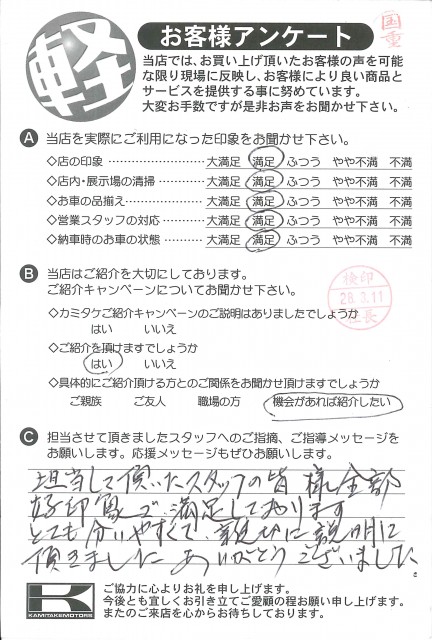 国重
軽
お客様アンケート
当店では、お買い上げ頂いたお客様の声を可能
な限り現場に反映し、お客様により良い商品と
サービスを提供する事に努めています。
大変お手数ですが是非お声をお聞かせ下さい。
A 当店を実際にご利用になった印象をお聞かせ下さい。
◇店の印象 …………………… 大満足 満足 ふつう やや不満 不満
◇店内・展示場の清掃 ………… 大満足 満足 ふつう やや不満 不満
◇お車の品揃え ………………… 大満足 満足 ふつう やや不満 不満
◇営業スタッフの対応 ………… 大満足 満足 ふつう やや不満 不満
◇納車時のお車の状態 ………… 大満足 満足 ふつう やや不満 不満
B 当店はご紹介を大切にしております。
ご紹介キャンペーンについてお聞かせ下さい。
検印
28.3.11
社長
◇カミタケご紹介キャンペーンのご説明はありましたでしょうか
はい いいえ
◇ご紹介を頂けますでしょうか
はい いいえ
◇具体的にご紹介頂ける方とのご関係をお聞かせ頂けますでしょうか
ご親族 ご友人 職場の方 機会があれば紹介したい
C 担当させて頂きましたスタッフへのご指摘、ご指導メッセージを
お願いします。応援メッセージもぜひお願いします。
担当して頂いたスタッフの皆様全部
好印象で満足しております
とても分いやすくて、説明に
頂きました ありがとうございました。
K
KAMITAKEMOTORS
ご協力に心よりお礼を申し上げます。
今後とも宜しくお引き立てご愛顧の程お願い申し上げます。
またのご来店を心からお待ちしております。